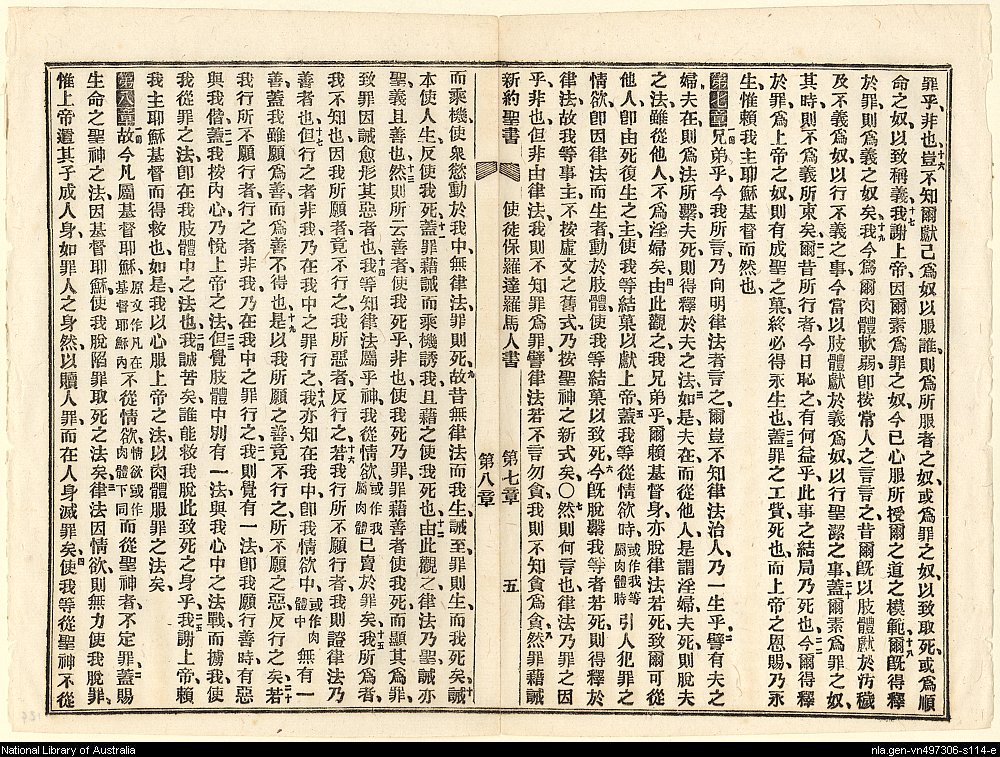 罪乎、非也、豈不知爾獻己爲奴以服誰、則爲所服者之奴、或爲罪之奴以致取死、或爲順
命之奴以致稱義、我謝上帝、因爾素爲罪之奴、今已心服所授爾之道之模範、爾既得釋
於罪、則爲義之奴矣、我今爲爾肉體軟弱、卽按常人之言言之、昔爾既以肢體獻於污穢
及不義爲奴、以行不義之事、今當以肢體獻於義爲奴、以行聖潔之事、蓋爾素爲罪之奴、
其時則不爲義所束矣、爾昔所行者、今日恥之、有何益乎、此事之結局乃死也、今爾得釋
於罪、爲上帝之奴、則有成聖之菓、終必得永生也、蓋罪之工貲死也、而上帝之恩賜乃永
生、惟賴我主耶穌基督而然也、
第七章 兄弟乎、今我所言、乃向明律法者言之、爾豈不知律法治人、乃一生乎、譬有夫之
婦、夫在則爲法所繫、夫死則得釋於夫之法、如是夫在而從他人、是謂淫婦、夫死則脫夫
之法、雖從他人、不爲淫婦矣、由此觀之、我兄弟乎、爾賴基督身亦脫律法若死、致爾可從
他人、卽由死復生之主、使我等結菓以獻上帝、蓋我等從情欲時、或作我等屬肉體時 引人犯罪之
情欲、卽因律法而生者、動於肢體、使我等結菓以致死、今既脫繫我等者若死、則得釋於
律法、故我等事主、不按虛文之舊式、乃按聖神之新式矣、○然則何言也、律法乃罪之因
乎、非也、但非由律法、我則不知罪爲罪、譬律法若不言勿貪、我則不知貪爲貪、然罪藉誡
新約聖書 使徒保羅達羅馬人書 第七章 第八章 五
而乘機使衆慾動於我中、無律法罪則死、故昔無律法而我生、誡至、罪則生、而我死矣、誡
本使人生、反使我死、蓋罪藉誡而乘機誘我、且藉之使我死也、由此觀之、律法乃聖、誡亦
聖義且善也、然則所云善者、使我死乎、非也、使我死乃罪、罪藉善者使我死、而顯其爲罪、
致罪因誡愈形其惡者也、我等知律法屬乎神、我從情欲、或作我屬肉體 已賣於罪矣、我所爲者、
我不知也、因我所願者、竟不行之、我所惡者、反行之、若我行所不願行者、我則證律法乃
善者也、但行之者非我、乃在我中之罪行之、我亦知在我中、卽我情欲中、或作肉體中 無有一
善、蓋我雖願爲善、而爲善不得也、是以我所願之善、竟不行之、所不願之惡、反行之矣、若
我行所不願行者、行之者非我、乃在我中之罪行之、我則覺有一法、卽我願行善時、有惡
與我偕、蓋我按內心、乃悅上帝之法、但覺肢體中別有一法、與我心中之法戰、而擄我使
我從罪之法、卽在我肢體中之法也、我誠苦矣、誰能救我脫此致死之身乎、我謝上帝、賴
我主耶穌基督而得救也、如是我以心服上帝之法、以肉體服罪之法矣、
第八章 故今凡屬基督耶穌、原文作凡在基督耶穌內 不從情欲、情欲或作肉體下同 而從聖神者、不定罪、蓋賜
生命之聖神之法、因基督耶穌使我脫陷罪取死之法矣、律法因情欲則無力使我脫罪、
惟上帝遣其子成人身、如罪人之身然、以贖人罪、而在人身滅罪矣、使我等從聖神不從
National Library of Australia
nla.gen-vn497306-s114-e